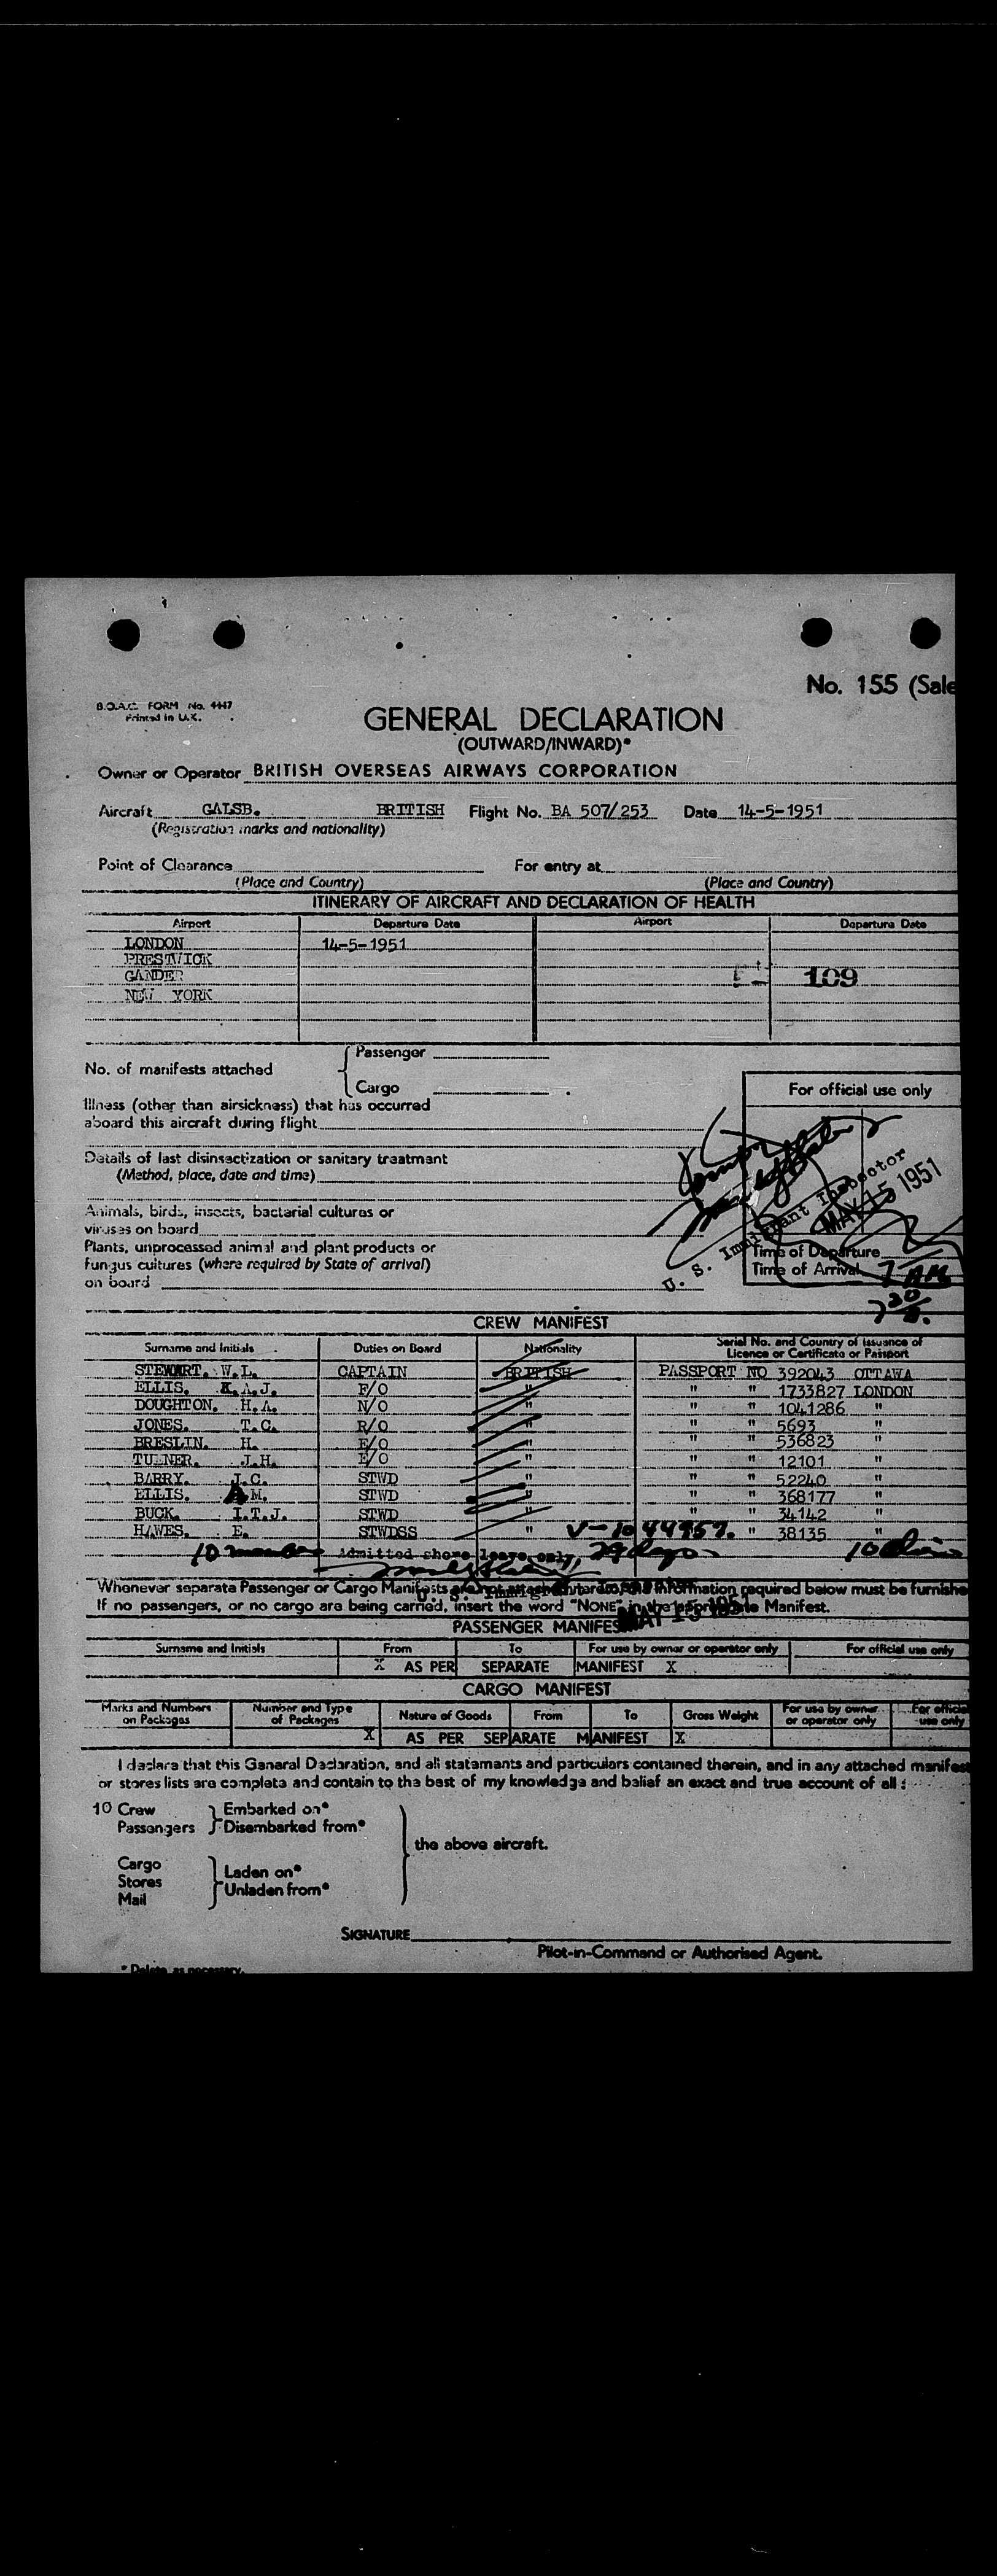 No. 155 (Sale
B.O.A.C. FORM No. 4447
Printed in U.K.
GENERAL DECLARATION
(OUTWARD/INWARD)*
Owner or Operator BRITISH OVERSEAS AIRWAYS CORPORATION
Aircraft GALSB. BRITISH Flight No. BA 507/253 Date 14-5-1951
(Registration marks and nationality)
Point of Clearance For entry at
(Place and Country) (Place and Country)
ITINERARY OF AIRCRAFT AND DECLARATION OF HEALTH
Airport Departure Date Airport Departure Date
LONDON 14-5-1951
PRESTWICK
GANDER 109
NEW YORK
No. of manifests attached
Passenger
Cargo
For official use only
Illness (other than airsickness) that has occurred
aboard this aircraft during flight
Details of last disinsectization or sanitary treatment
(Method, place, date and time)
U. S. Immigrant Inspector
MAY 15 1951
Animals, birds, insects, bacterial cultures or
viruses on board
Plants, unprocessed animal and plant products or
fungus cultures (where required by State of arrival)
on board
Time of Departure
Time of Arrival 7 AM
CREW MANIFEST
Surname and Initials Duties on Board Nationality Serial No. and Country of Issuance of
Licence or Certificate or Passport
STEWART. W.L. CAPTAIN BRITISH PASSPORT NO 392043 OTTAWA
ELLIS. K.A.J. F/O " " " 1733827 LONDON
DOUGHTON. H.A. N/O " " " 1041286 "
JONES. T.C. R/O " " " 5693 "
BRESLIN. H. E/O " " " 536823 "
TURNER. J.H. E/O " " " 12101 "
BARRY. J.C. STWD " " " 52240 "
ELLIS. A.M. STWD " " " 368177 "
BUCK. I.T.J. STWD " " " 34142 "
HAWES. E. STWDSS " V-1044957. " 38135 "
10 Admitted shore leave only, 29 days 10
Whenever separate Passenger or Cargo Manifests are not attached hereto, the information required below must be furnishe
If no passengers, or no cargo are being carried, insert the word "NONE" in the appropriate Manifest.
MAY 15 1951
PASSENGER MANIFEST
Surname and Initials From To For use by owner or operator only For official use only
X AS PER SEPARATE MANIFEST X
CARGO MANIFEST
Marks and Numbers on Packages Number and Type of Packages Nature of Goods From To Gross Weight For use by owner or operator only For officia use only
X AS PER SEPARATE MANIFEST X
I declare that this General Declaration, and all statements and particulars contained therein, and in any attached manifes
or stores lists are complete and contain to the best of my knowledge and belief an exact and true account of all
10 Crew Embarked on*
Passengers Disembarked from*
the above aircraft.
Cargo
Laden on*
Stores
Unladen from*
Mail
SIGNATURE
Pilot-in-Command or Authorised Agent.
* Delete as necessary.